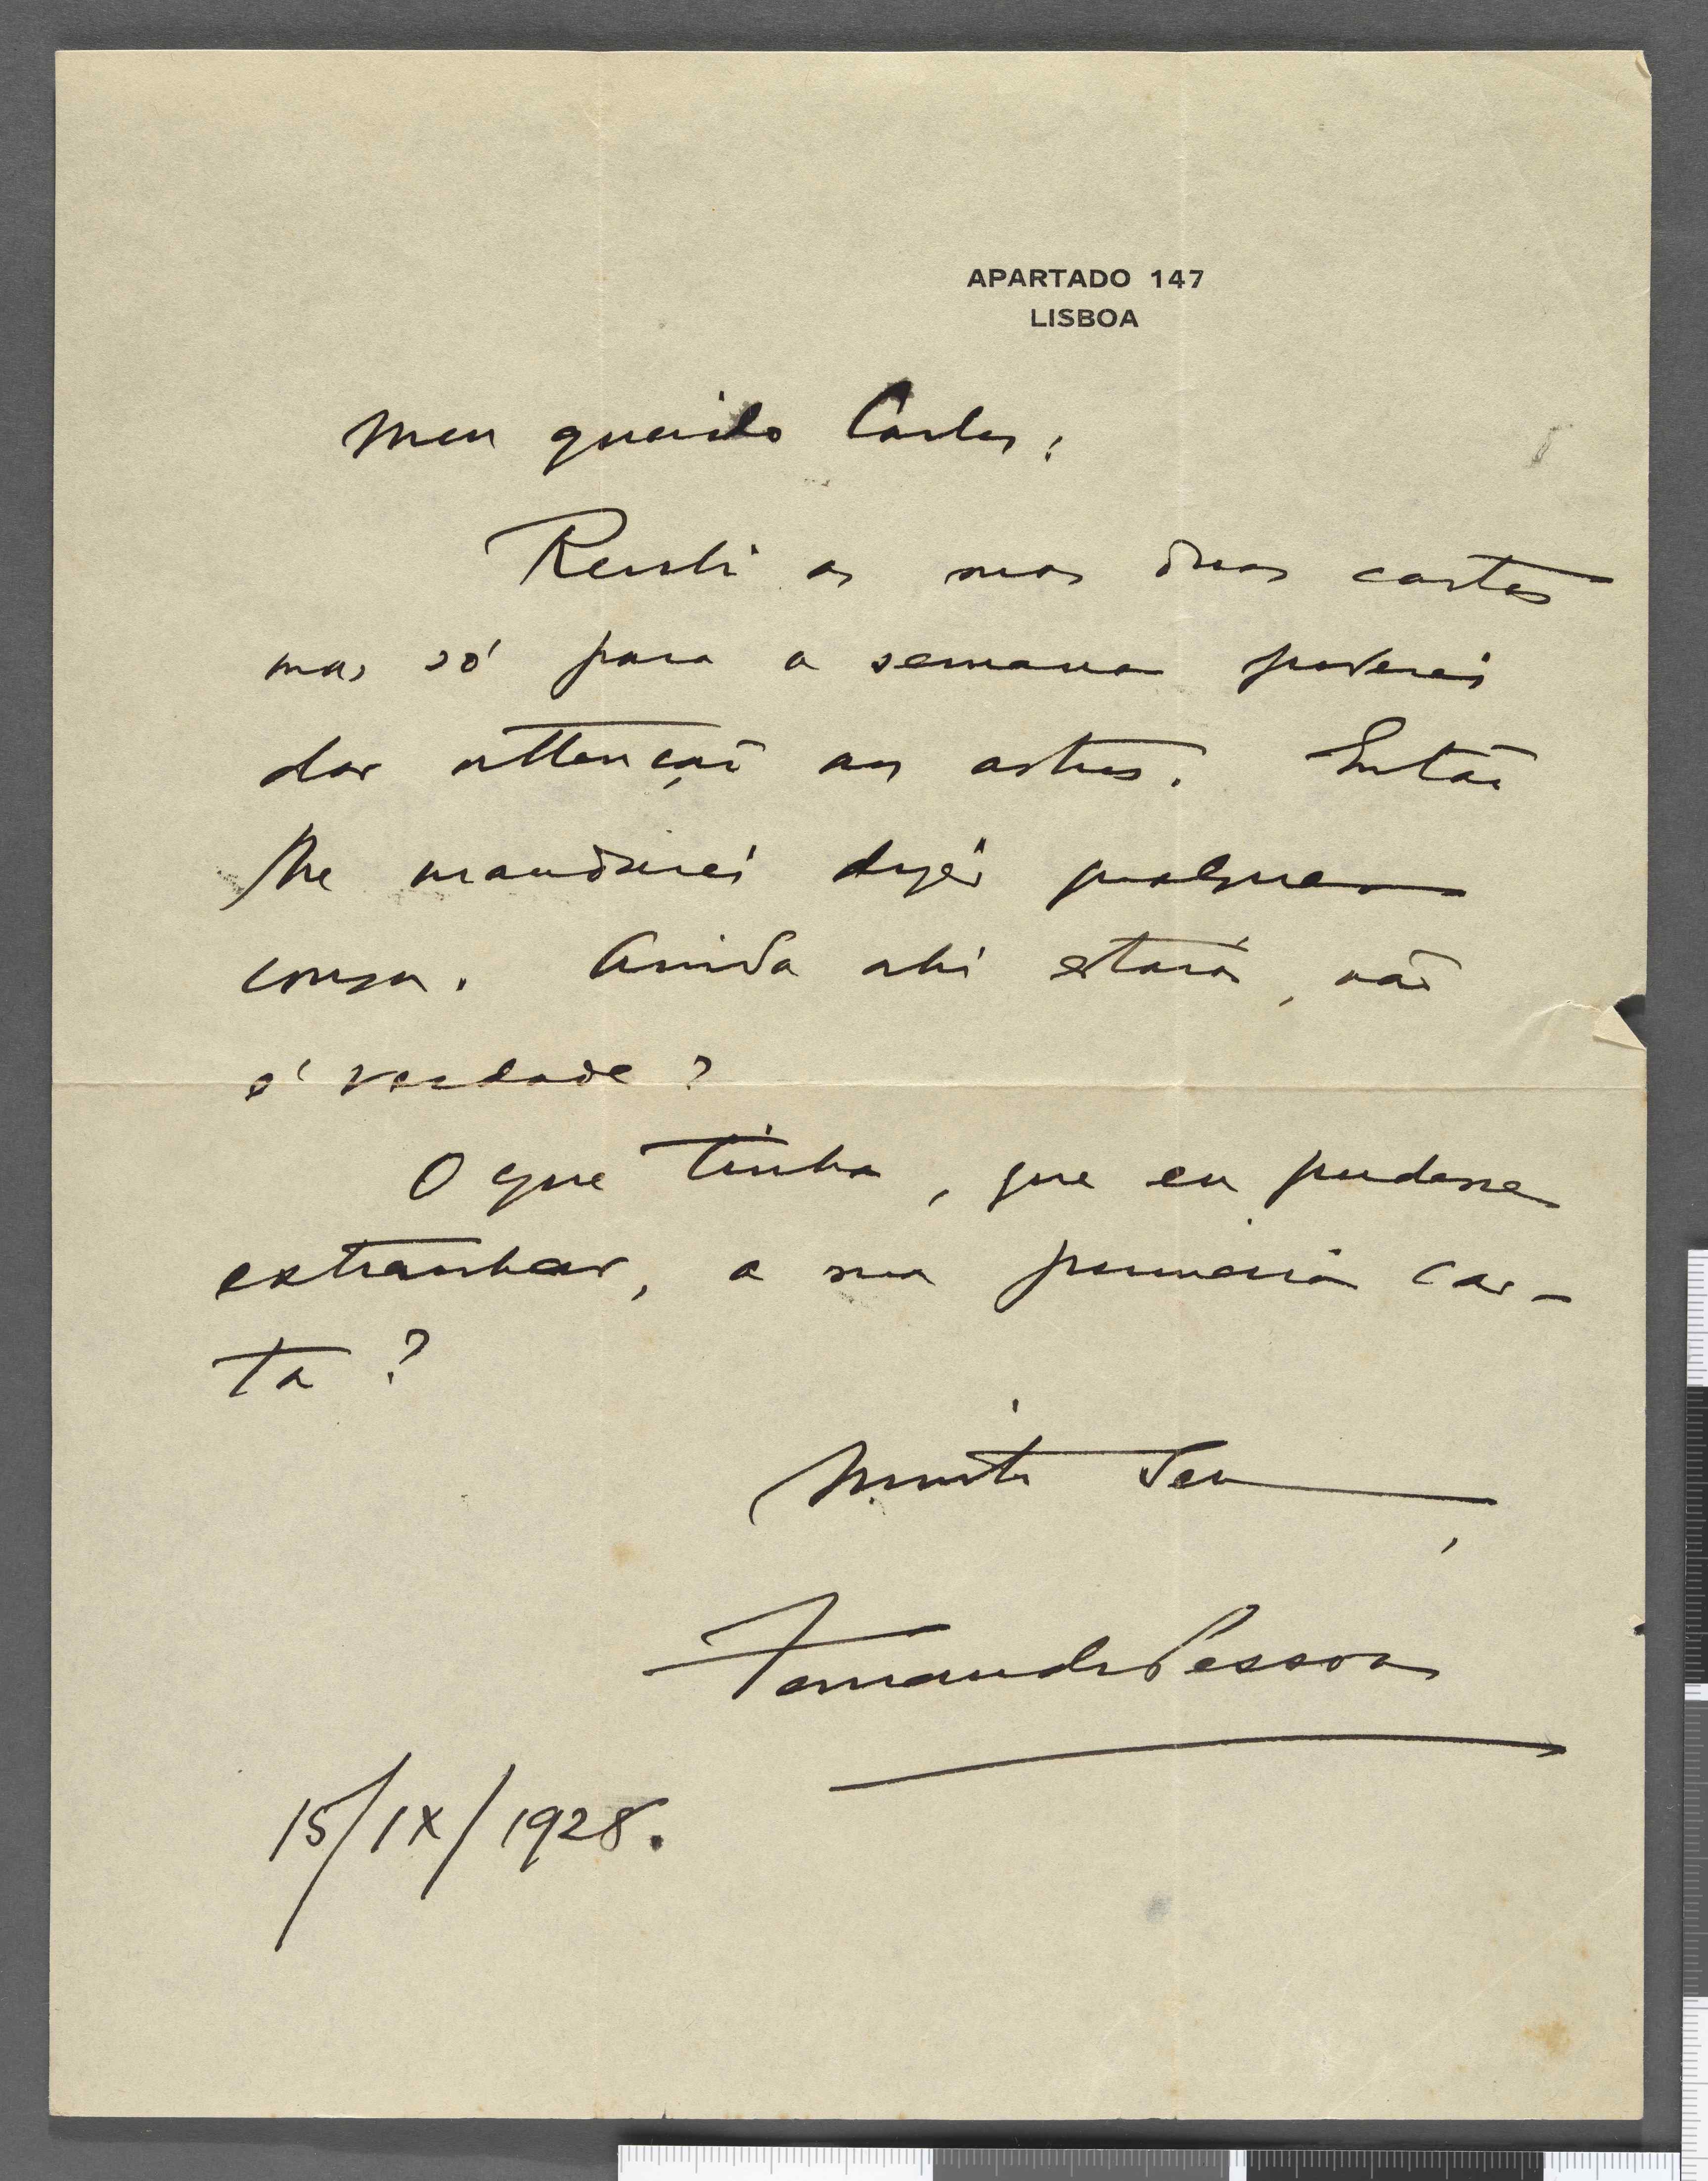 APARTADO 147
LISBOA
Meu querido Carlos:
Recebi as suas duas cartas
mas só para a semana poderei
dar attenção aos astros. Então
lhe mandarei dizer qualquer
cousa. Ainda ahi estará, não
é verdade?
O que tinha, que eu pudesse
extranhar, a sua primeira car-
ta?
Muito seu,
Fernando Pessoa
15/IX/1928.